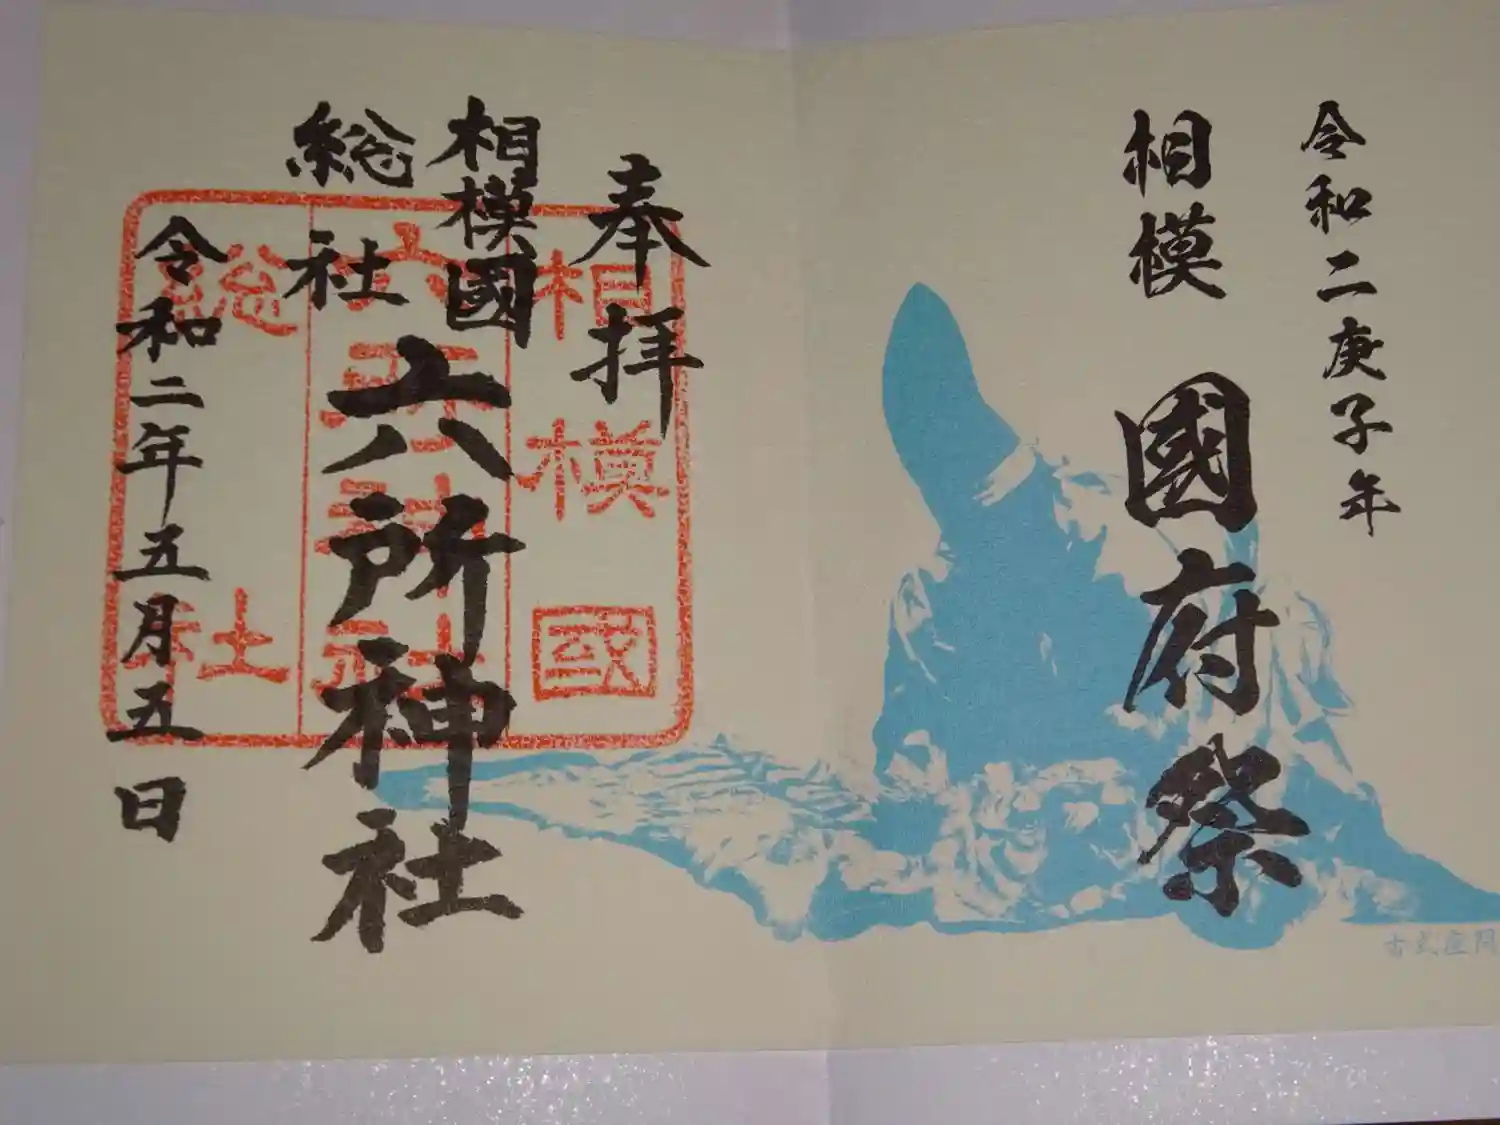 令和二庚子年
相模 國府祭
奉拝
相模國
総社
六所神社
令和二年五月五日
相模國
六所神社
総社